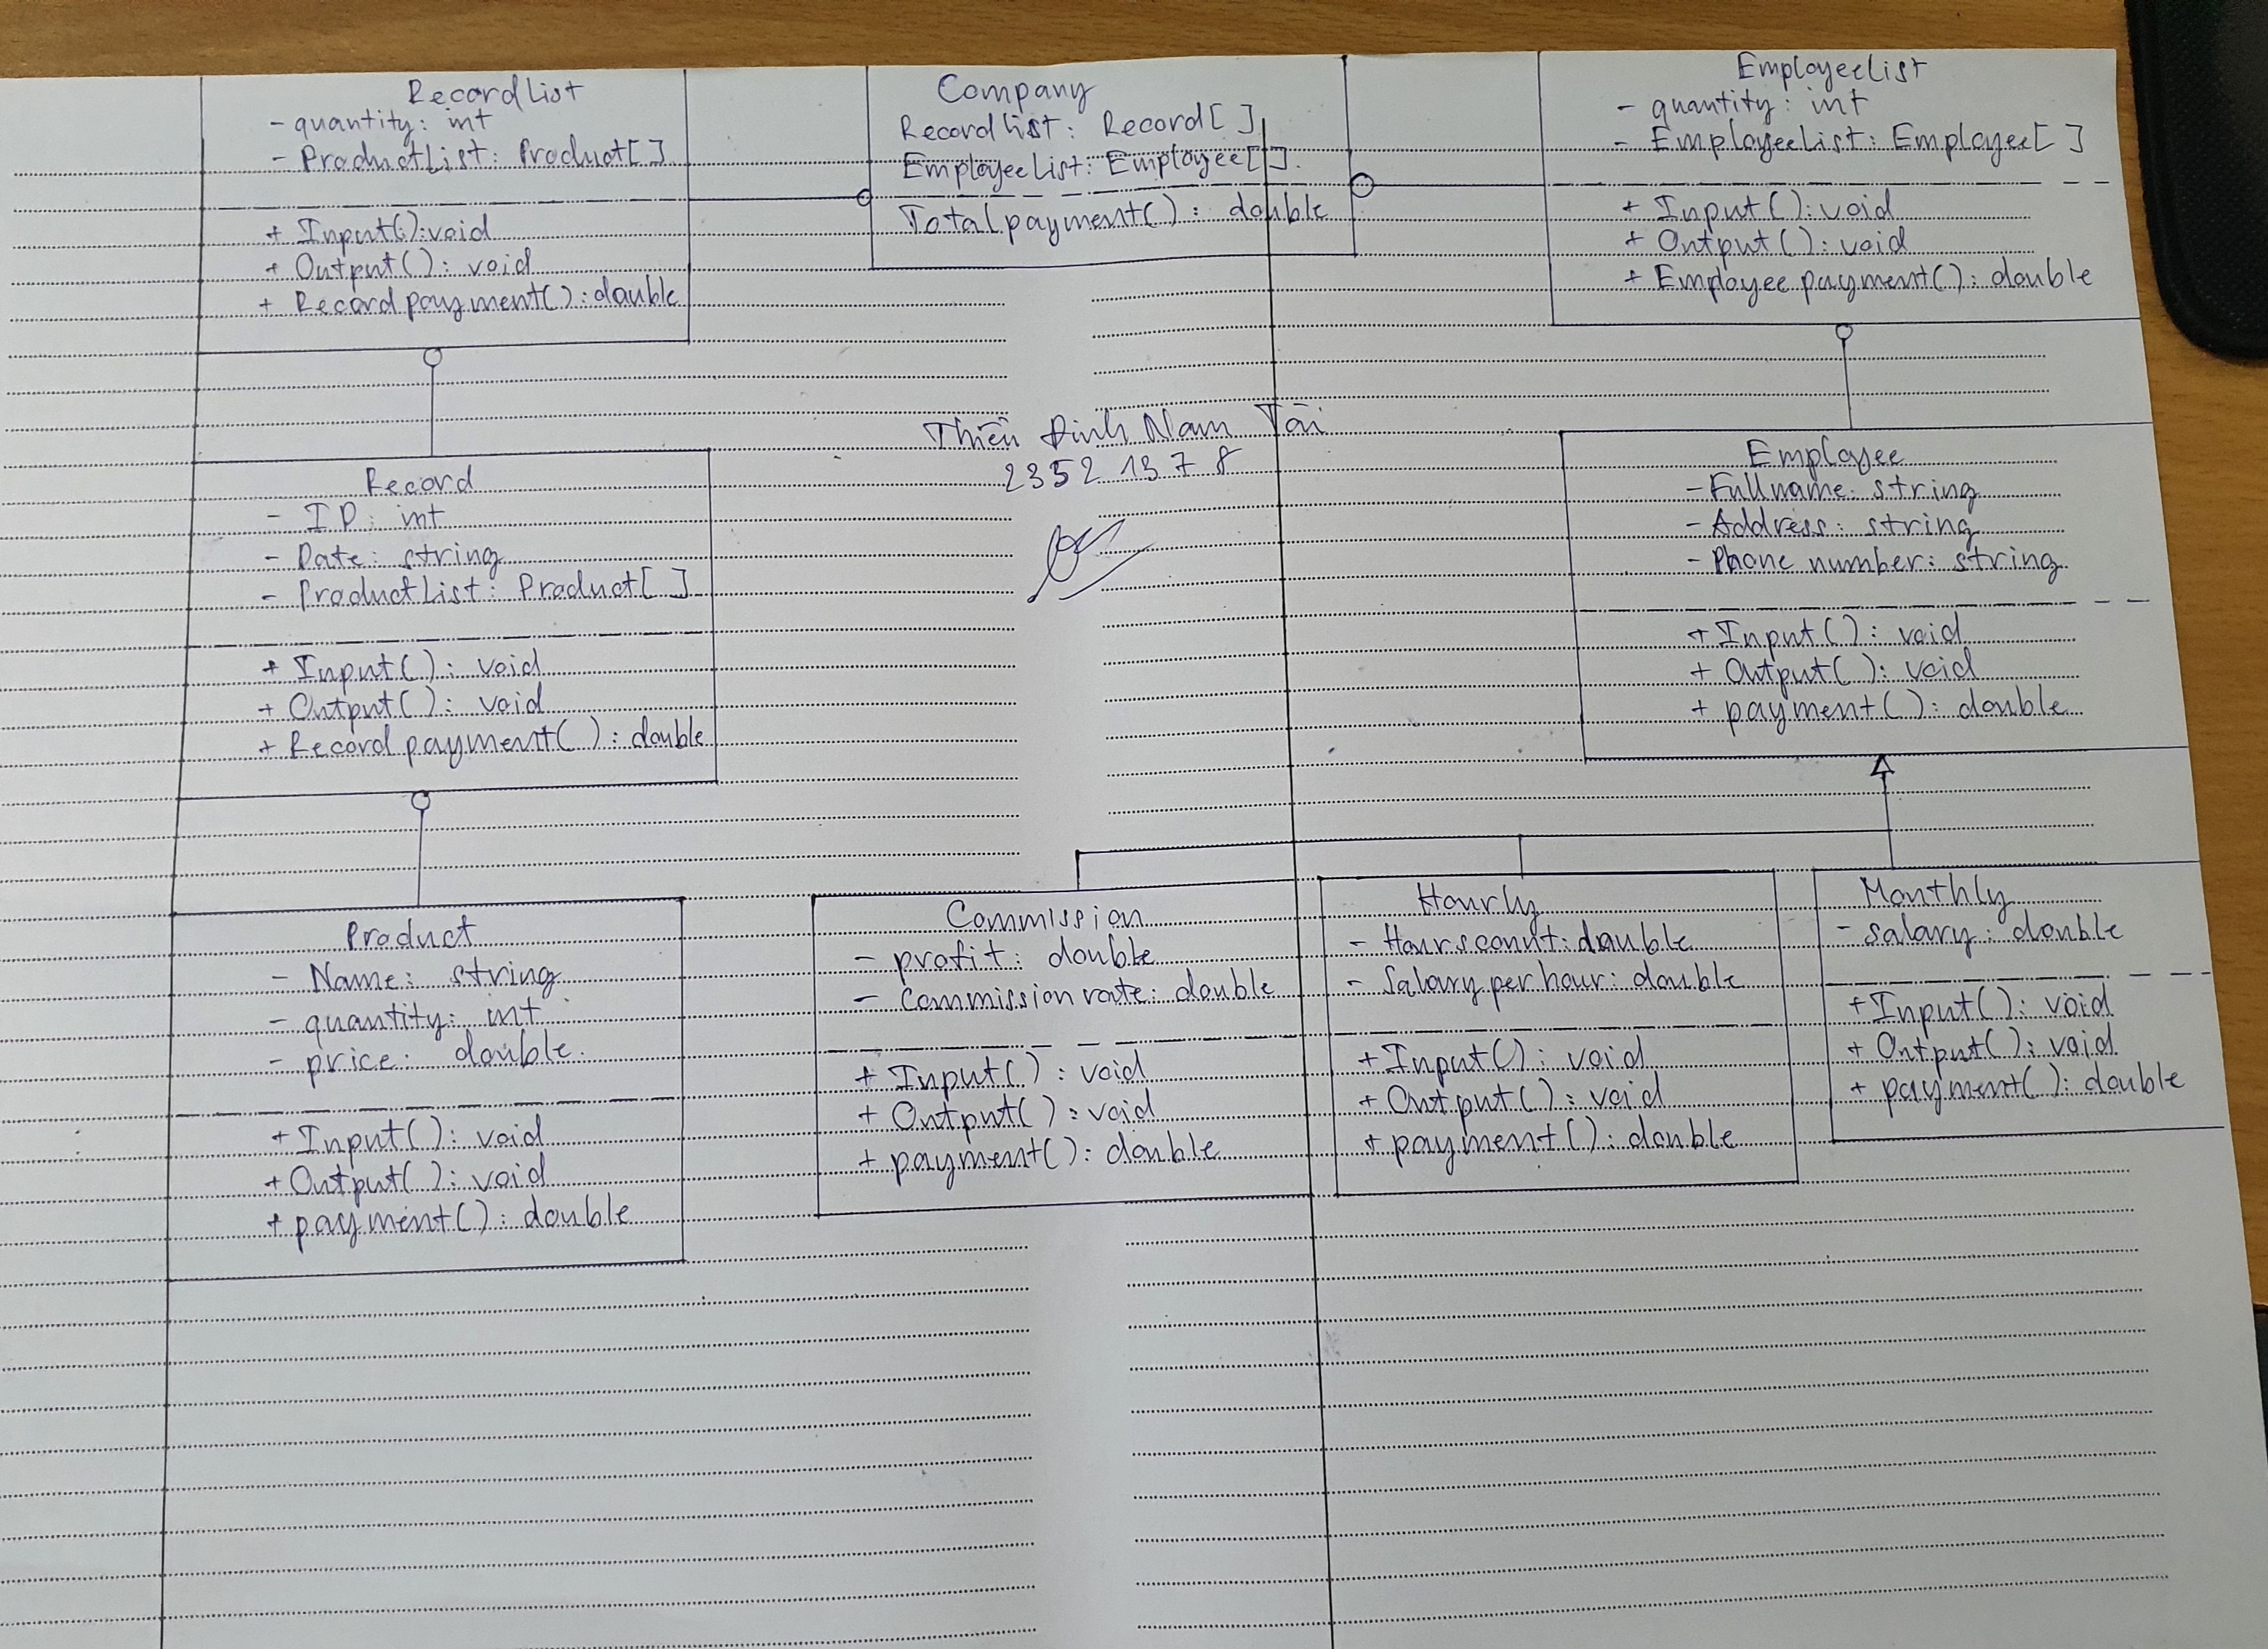 RecordList
- quantity: int
- ProductList: Product[]
+ Input():void
+ Output(): void
+ Record payment(): double
Company
Recordlist: Record[]
EmployeeList: Employee[].
Total payment(): double
EmployeeList
- quantity: int
- EmployeeList: Employee[]
+ Input(): void
+ Output(): void
+ Employee payment(): double
Thiều Đinh Nam Tài
23521378
Record
- ID: int
- Date: string
- ProductList: Product[]
+ Input(): void
+ Output(): void
+ Record payment(): double
Employee
- Fullname: string
- Address: string
- Phone number: string
+ Input(): void
+ Output(): void
+ payment(): double
Product
- Name: string
- quantity: int
- price: double
+ Input(): void
+ Output(): void
+ payment(): double
Commission
- profit: double
- Commission rate: double
+ Input(): void
+ Output(): void
+ payment(): double
Hourly
- Hourscount: double
- Salary per hour: double
+ Input(): void
+ Output(): void
+ payment(): double
Monthly
- salary: double
+ Input(): void
+ Output(): void
+ payment(): double